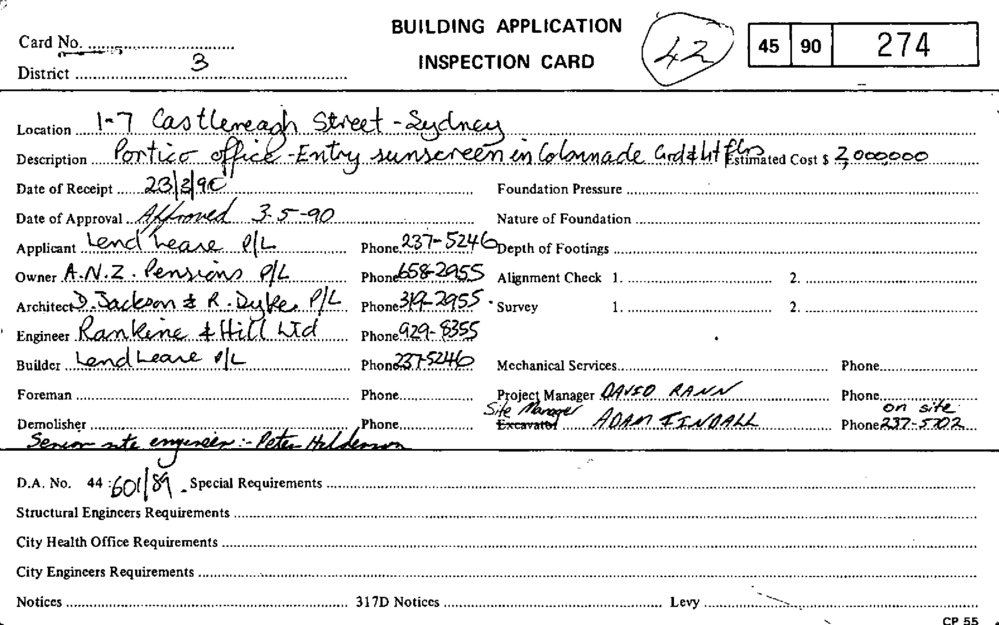 BUILDING APPLICATION
INSPECTION CARD
Card No.
District 3
42
45 90 274
Location 1-7 Castlereagh Street - Sydney
Description Portico office - Entry sunscreen in Colonnade Grd & 1st flrs Estimated Cost $ 2,000,000
Date of Receipt 23/3/90 Foundation Pressure
Date of Approval Approved 3-5-90 Nature of Foundation
Applicant Lend Lease P/L Phone 237-5246 Depth of Footings
Owner A.N.Z. Pensions P/L Phone 658-2955 Alignment Check 1. 2.
Architect D. Jackson & R. Dyke P/L Phone 319-2955 Survey 1. 2.
Engineer Rankine & Hill Ltd Phone 929-8355
Builder Lend Lease P/L Phone 237-5246 Mechanical Services Phone
Foreman Phone Project Manager DAVID RANN Phone
Demolisher Phone Site Manager Excavator ADAM TINDALL Phone on site 237-5702
Senior site engineer :- Peter
D.A. No. 44 : 601/89 Special Requirements
Structural Engineers Requirements
City Health Office Requirements
City Engineers Requirements
Notices 317D Notices Levy
CP 55